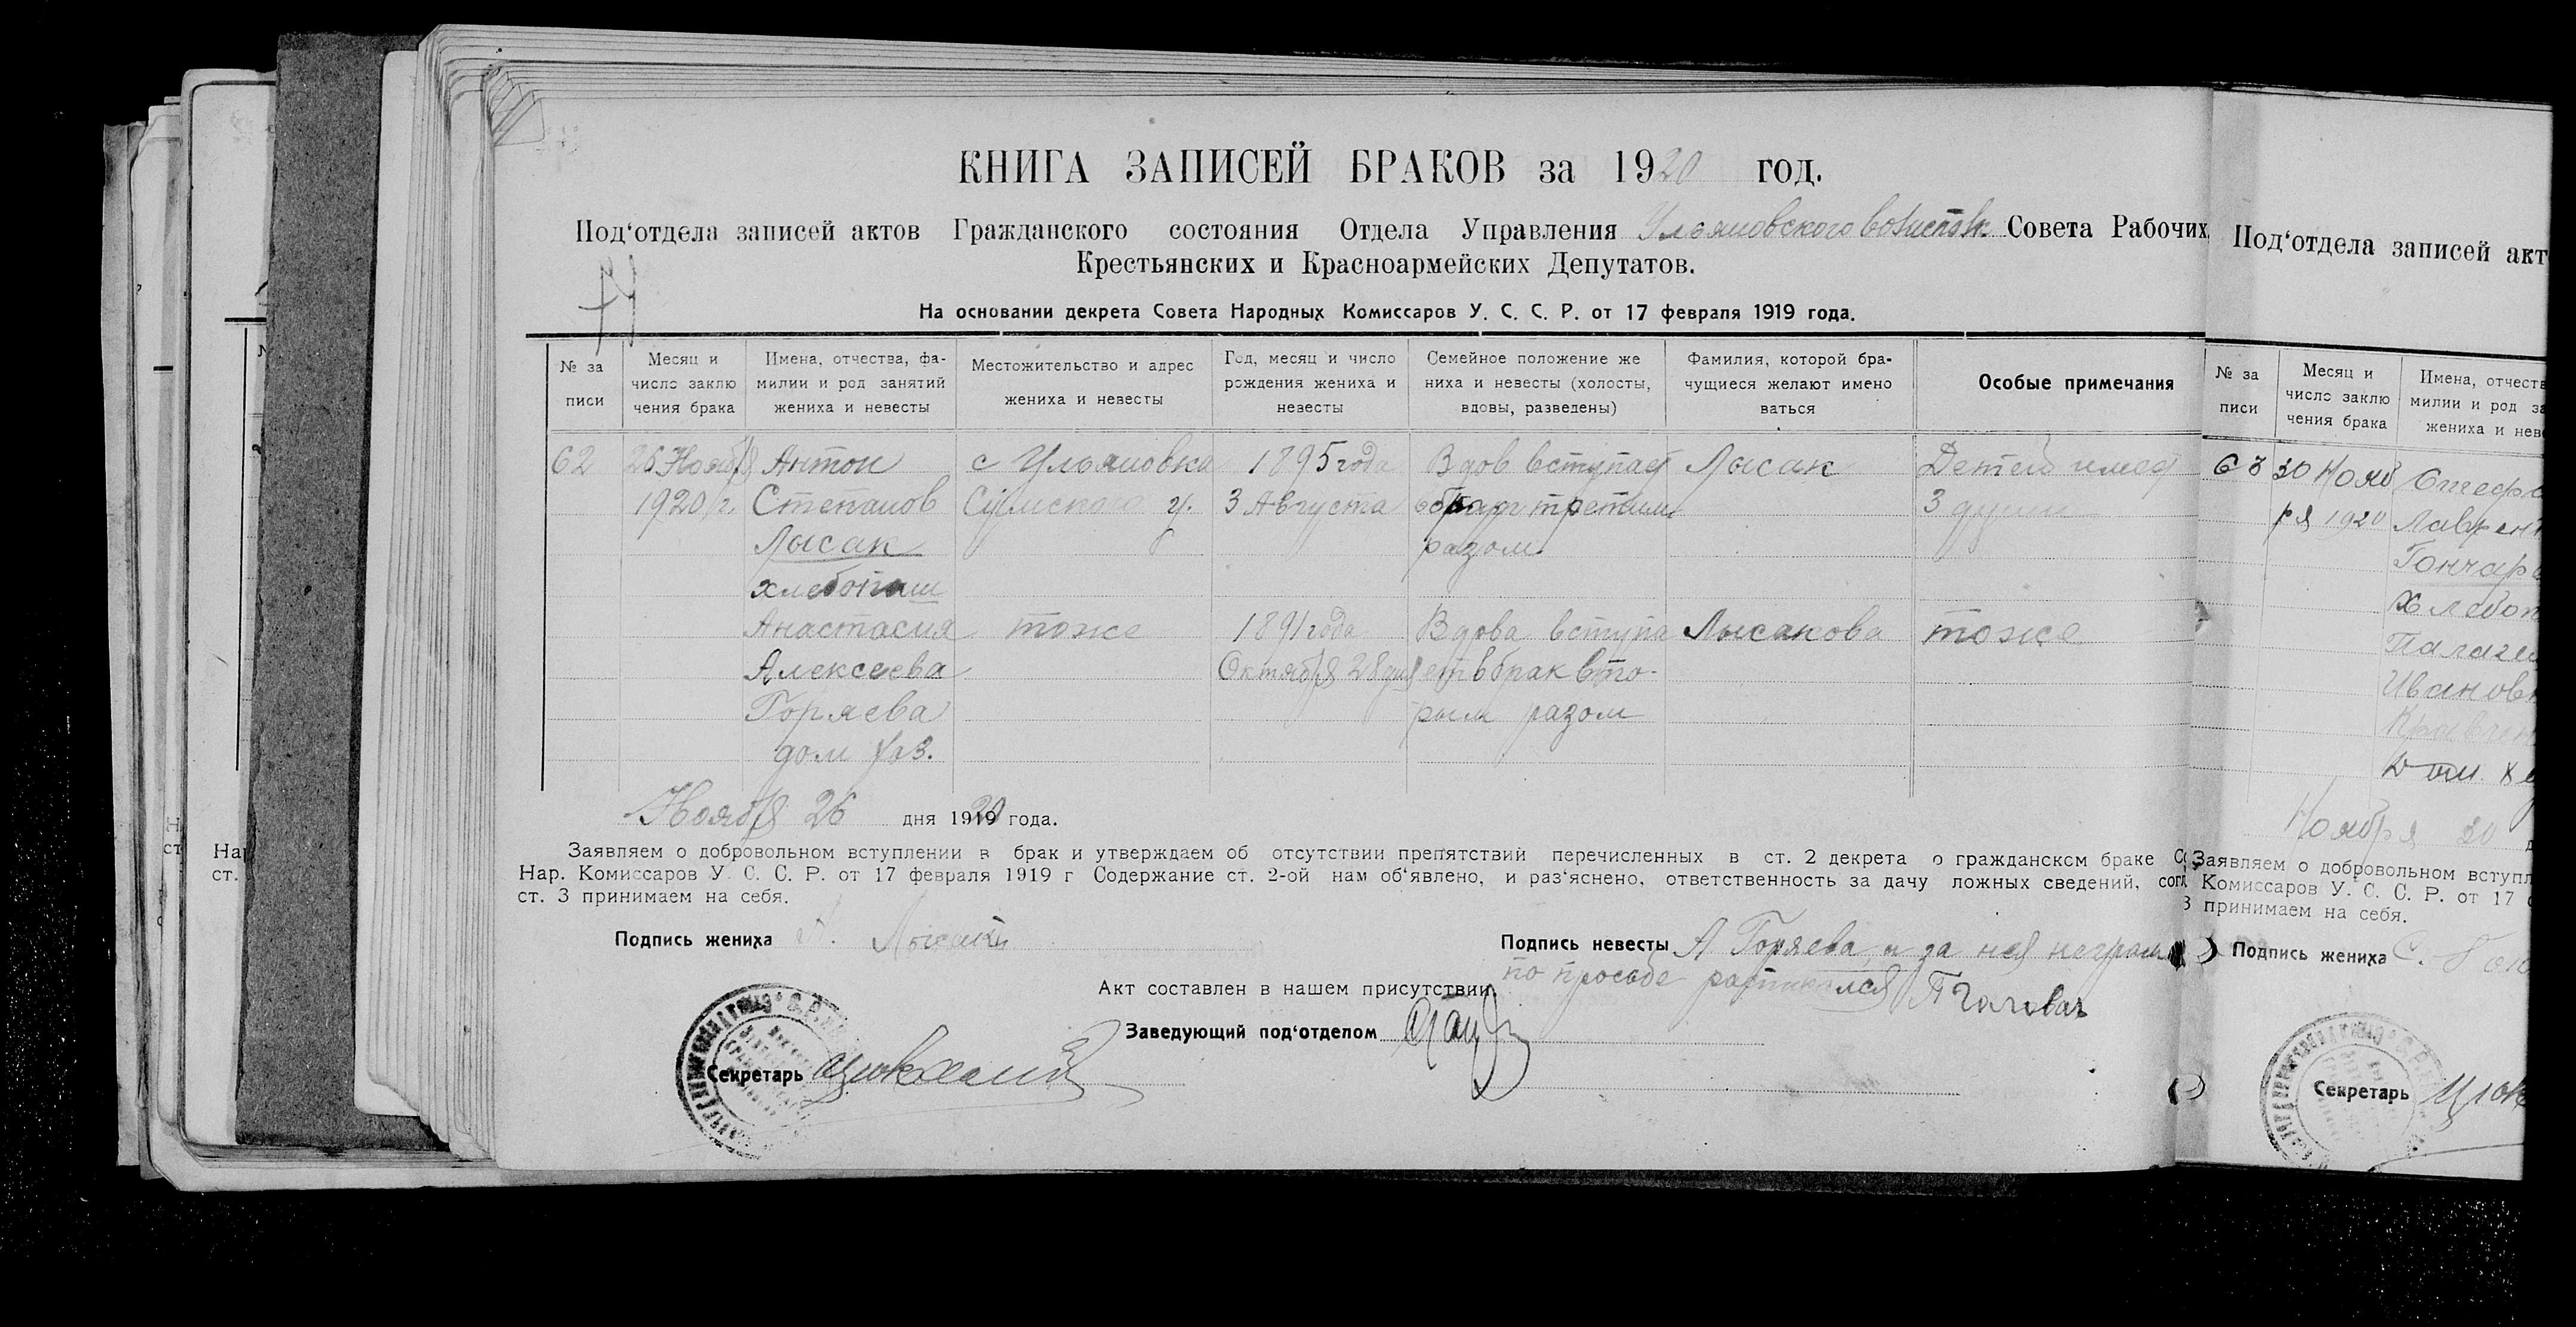 КНИГА ЗАПИСЕЙ БРАКОВ за 1920 год.
Под‘отдела записей актов Гражданского состояния Отдела Управления Ульяновского Совета Рабочих,
Крестьянских и Красноармейских Депутатов.
На основании декрета Совета Народных Комиссаров У. С. С. Р. от 17 февраля 1919 года.
№ за писи
Месяц и число заклю чения брака
Имена, отчества, фа- милии и род занятий жениха и невесты
Местожительство и адрес жениха и невесты
Год, месяц и число рождения жениха и невесты
Семейное положение же ниха и невесты (холосты, вдовы, разведены)
Фамилия, которой бра- чущиеся желают имено ваться
Особые примечания
62 26 Ноября Антон с Ульяновка 1895 года Вдов вступает Лысак Детей имеет
1920 г. Степанов Сумского у. 3 Августа в брак третим 3 души
Лысак разом
хлебопаш
Анастасия тоже 1891 года Вдова вступа Лысакова тоже
Алексеева Октября 28 дня ет в брак вто-
Горяева рым разом
дом хоз.
Ноября 26 дня 1920 года.
Заявляем о добровольном вступлении в брак и утверждаем об отсутствии препятствий перечисленных в ст. 2 декрета о гражданском браке
Нар. Комиссаров У. С. С. Р. от 17 февраля 1919 г Содержание ст. 2-ой нам об‘явлено, и раз‘яснено, ответственность за дачу ложных сведений, согл
ст. 3 принимаем на себя.
Подпись жениха А. Лысак
Подпись невесты А. Горяева, а за нея неграм
по просьбе росписался
Акт составлен в нашем присутствии
Заведующий под‘отделом
Секретарь
Под‘отдела записей акт
№ за писи
Месяц и число заклю чения брака
Имена, отчеств милии и род за жениха и нев
63 30 Нояб Стефа
ря 1920 Лаврент
Гончар
Хлебоп
Палаге
Ивановн
Кравчен
Дом. х
Ноября 30
Заявляем о добровольном вступл
Комиссаров У. С. С. Р. от 17
3 принимаем на себя.
Подпись жениха С. Гон
Секретарь